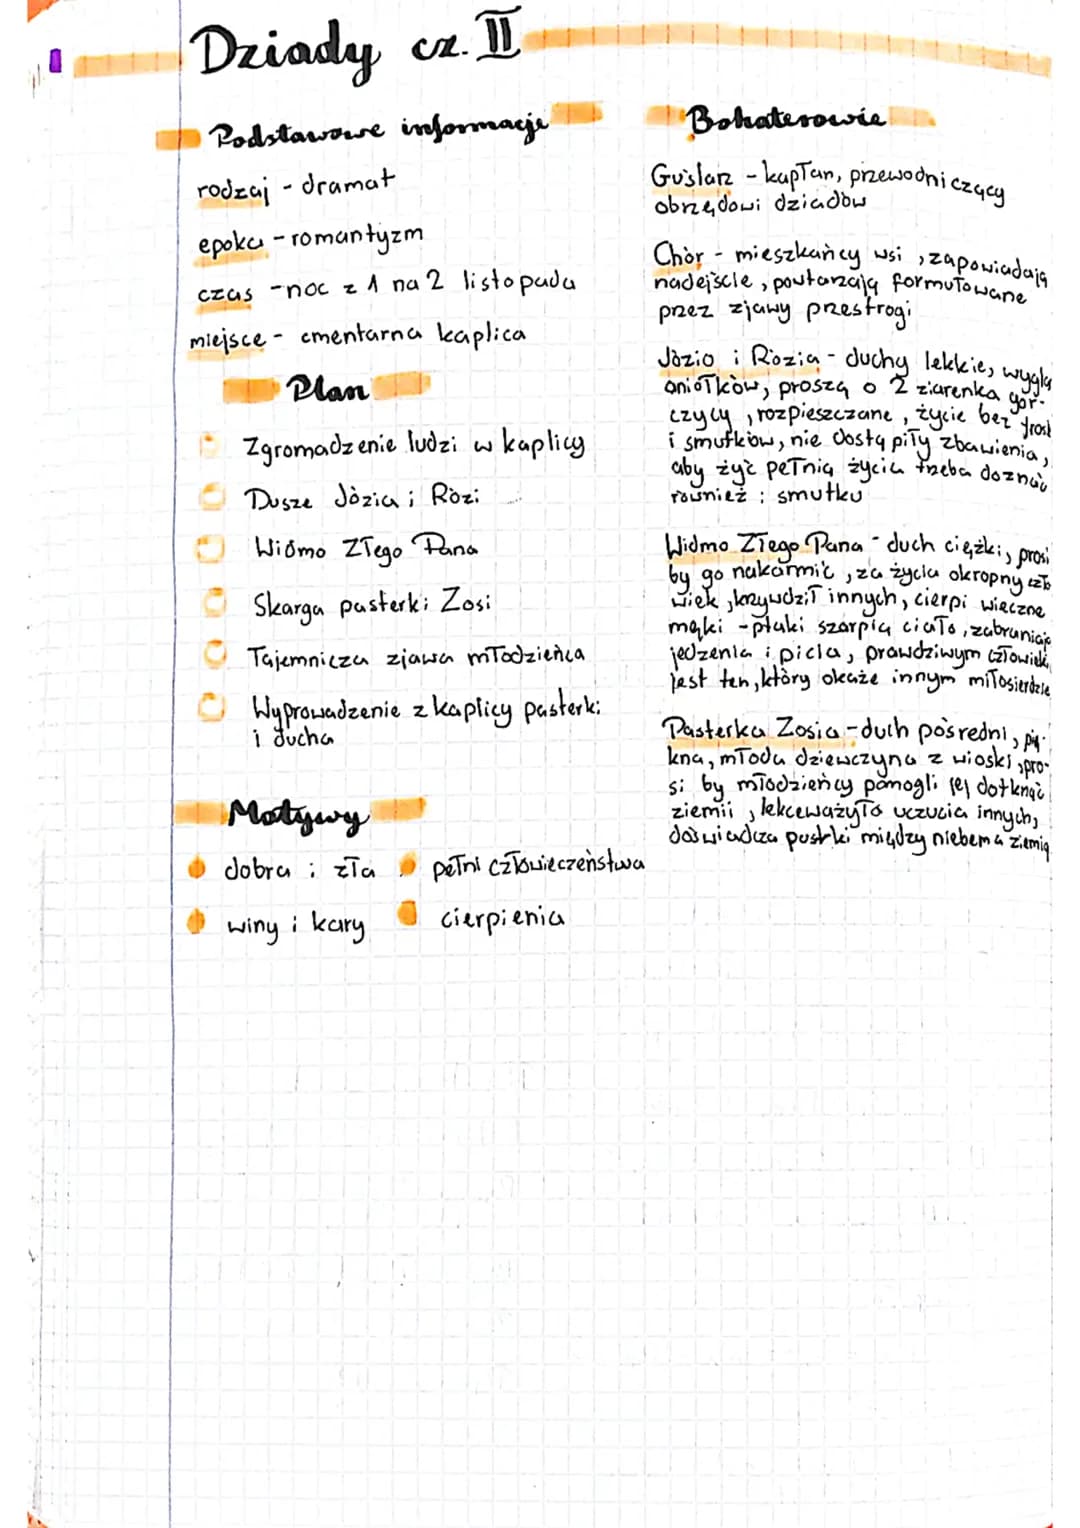 Dziady cz. II
Podstawowe informacje
rodzaj - dramat
epoka - romantyzm
czas - noc z 1 na 2 listopada
miejsce - cmentarna kaplica
Plan
Zgromadzenie ludzi w kaplicy
Dusze Józia i Rózi
Widmo Złego Pana
Skarga pasterki Zosi
Tajemnicza zjawa młodzieńca
Wyprowadzenie z kaplicy pasterki
i ducha
Motywy
dobra i zła
pełni człowieczeństwa
winy i kary
cierpienia
Bohaterowie
Guślarz - kapłan, przewodniczący
obrzędowi dziadów
Chór - mieszkańcy wsi, zapowiadają
nadejście, powtarzają formułowane
przez zjawy przestrogi
Józio i Rózia - duchy lekkie, wyglą
aniołków, proszą o 2 ziarenka gor-
czycy, rozpieszczane, życie bez trosk
i smutków, nie dostąpiły zbawienia,
aby żyć pełnią życia trzeba doznać
również smutku
Widmo Złego Pana - duch ciężki, prosi
by go nakarmić, za życia okropny czło
wiek, krzywdził innych, cierpi wieczne
męki - ptaki szarpią ciało, zabraniają
jedzenia i picia, prawdziwym człowiek
jest ten, który okaże innym miłosierdzie
Pasterka Zosia - duch pośredni, pię-
kna, młoda dziewczyna z wioski, pro-
si by młodzieńcy pomogli jej dotknąć
ziemii, lekceważyła uczucia innych,
doświadcza pustki między niebem a ziemią